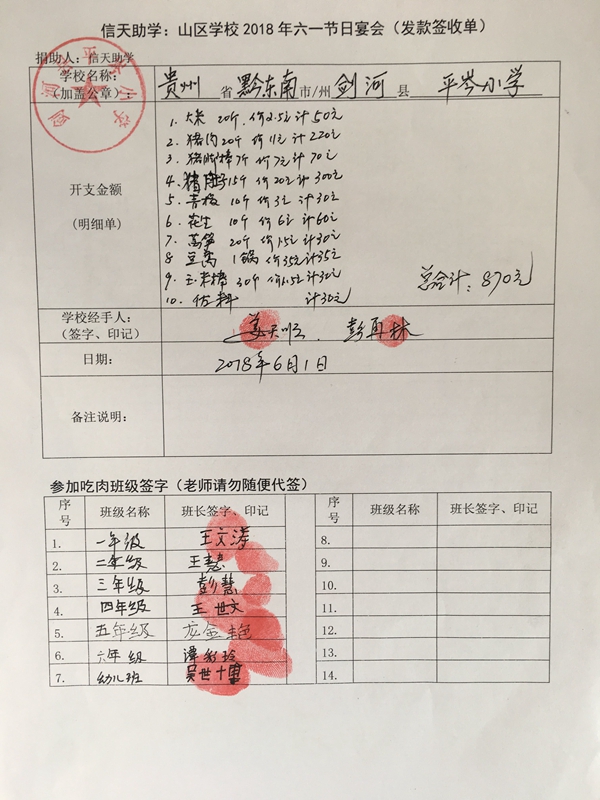 信天助学：山区学校2018年六一节日宴会（发款签收单）
捐助人：信天助学
学校名称：
（加盖公章）：
贵州 省 黔东南 市/州 剑河 县 平岑小学
开支金额
(明细单)
1. 大米 20斤.价2.5元计50元
2. 猪肉20斤 价11元计220元
3. 猪脚棒7斤 价7元计70元
4. 猪肚子15斤 价20元计300元
5. 青椒 10斤 价3元计30元
6. 花生 10斤 价6元计60元
7. 莴笋 20斤 价1.5计30元
8 豆腐 1锅 价35元计35元
9. 玉米棒 30个价1.5元计30元
10. 佐料 计30元
总合计：870元
学校经手人：
（签字、印记）
姜天顺. 彭再林
日期：
2018年6月1日
备注说明：
参加吃肉班级签字（老师请勿随便代签）
序号 班级名称 班长签字、印记 序号 班级名称 班长签字、印记
1. 一年级 王文涛 8.
2. 二年级 王慧 9.
3. 三年级 彭慧 10.
4. 四年级 王世文 11.
5. 五年级 龙金艳 12.
6. 六年级 谭彩玲 13.
7. 幼儿班 吴世 14.